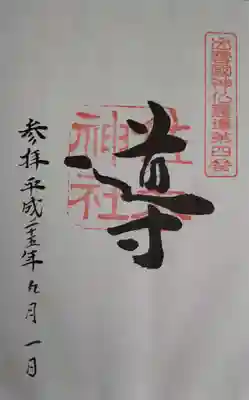 出雲國神仏霊場第四番
導
佐太
神社
参拝 平成二十五年九月一日